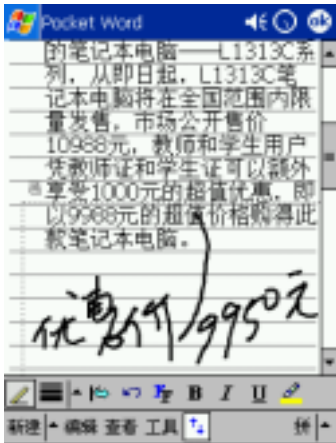 Pocket Word
ok
的笔记本电脑——L1313C系
列，从即日起，L1313C笔
记本电脑将在全国范围内限
量发售，市场公开售价
10988元，教师和学生用户
凭教师证和学生证可以额外
享受1000元的超值优惠，即
以9988元的超值价格购得此
款笔记本电脑。
优惠价 9950元
B I U
新建 编辑 查看 工具 拼